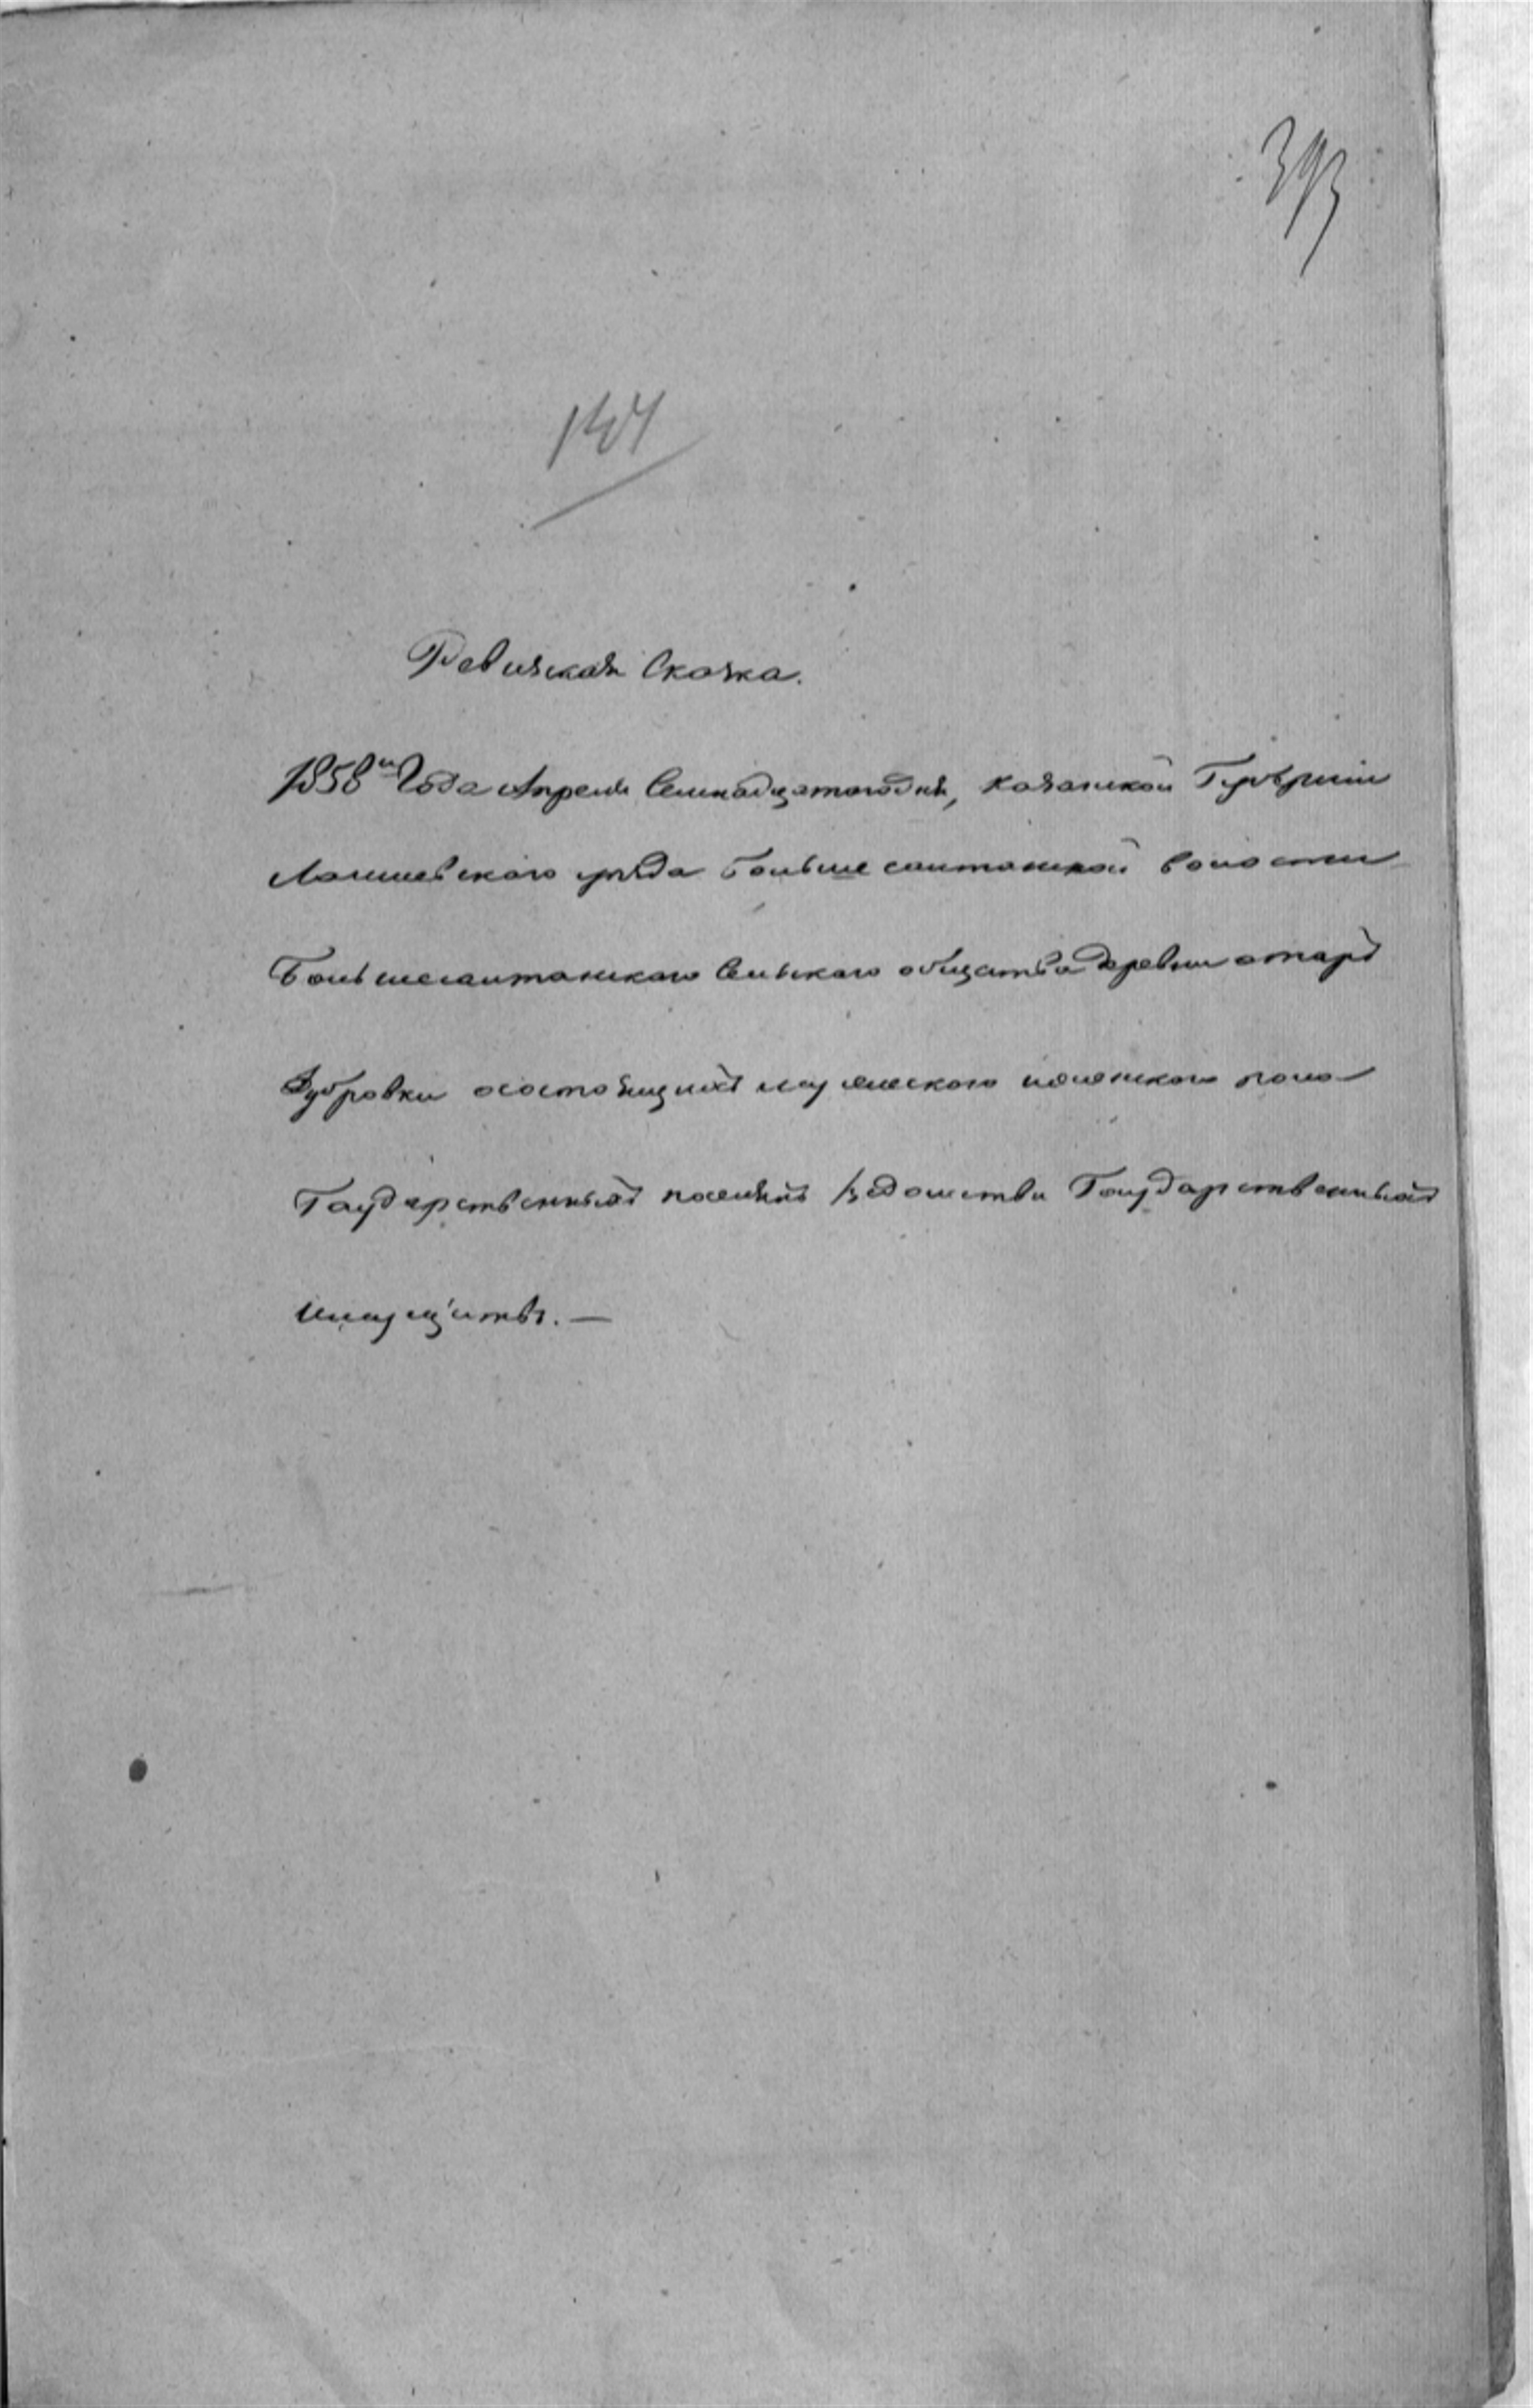 393
144
Ревизская Сказка.
1858го Года Апреля Семнадцатого дня, Казанской Губернии
Лаишевского уезда Больше салтанской волости
Большесалтанского Сельского общества деревни отаръ
Дубровки о состоящихъ мужескаго и женского пола
Государственныхъ поселянъ Ведомства Государственныхъ
имуществъ. —